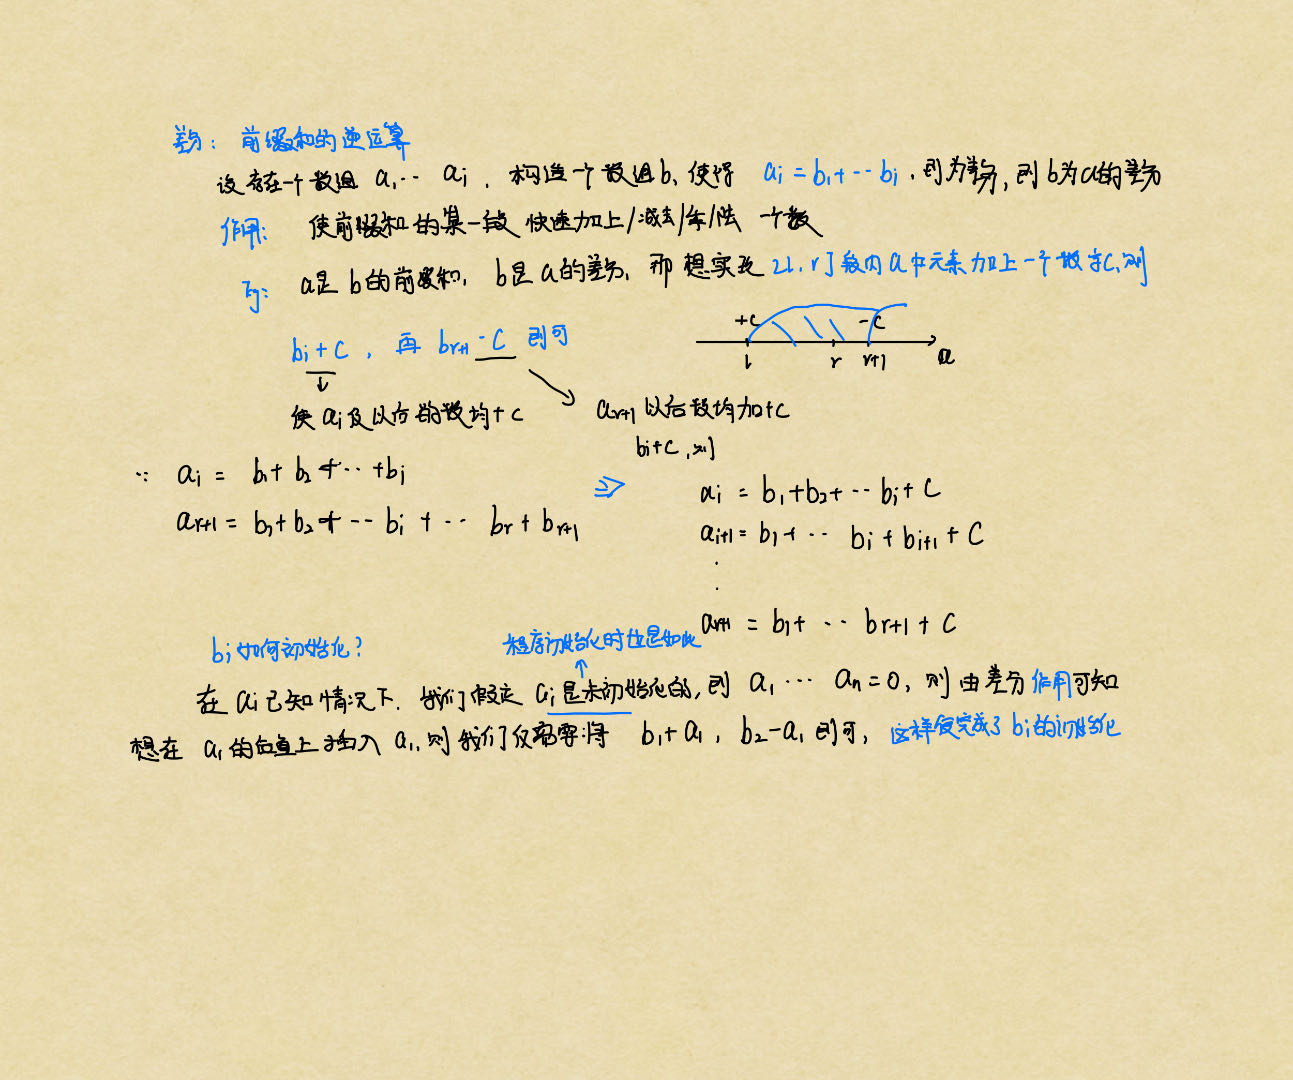 差分: 前缀和的逆运算
设存在一个数组 a₁… aᵢ, 构造一个数组b, 使得 aᵢ = b₁+…bᵢ, 则为差分, 则b为a的差分
作用: 使前缀和的某一段 快速加上/减去/乘/除 一个数
Eg: a是b的前缀和, b是a的差分, 那想实现 [l, r]数内a中元素加上一个数字c,则
+c -c
l r r+1 a
bᵢ+c, 再 bᵣ₊₁ - c 即可
使aᵢ及以后的数均+c
aᵣ₊₁以后数均加+c
bᵢ+c, 则
∵ aᵢ = b₁+b₂+…+bᵢ
aᵣ₊₁ = b₁+b₂+…bᵢ+… bᵣ+bᵣ₊₁
⇒
aᵢ = b₁+b₂+…bᵢ+c
aᵢ₊₁ = b₁+… bᵢ+bᵢ₊₁+c
⋮
aᵣ₊₁ = b₁+… bᵣ₊₁+c
bᵢ如何初始化?
程序初始化时也是如此
在aᵢ已知情况下, 我们假定aᵢ是未初始化的, 则 a₁…aₙ=0, 则由差分作用可知
想在a₁的位置上插入a₁, 则我们仅需要将 b₁+a₁, b₂-a₁即可, 这样便完成了bᵢ的初始化